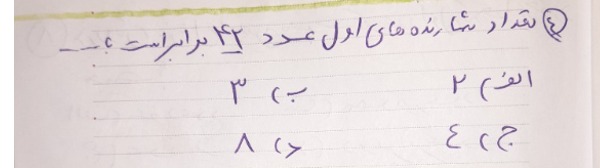 ④ تعداد شمارنده های اول عدد ۴۲ برابر است با ...
الف) ۲ ب) ۳
ج) ٤ د) ۸